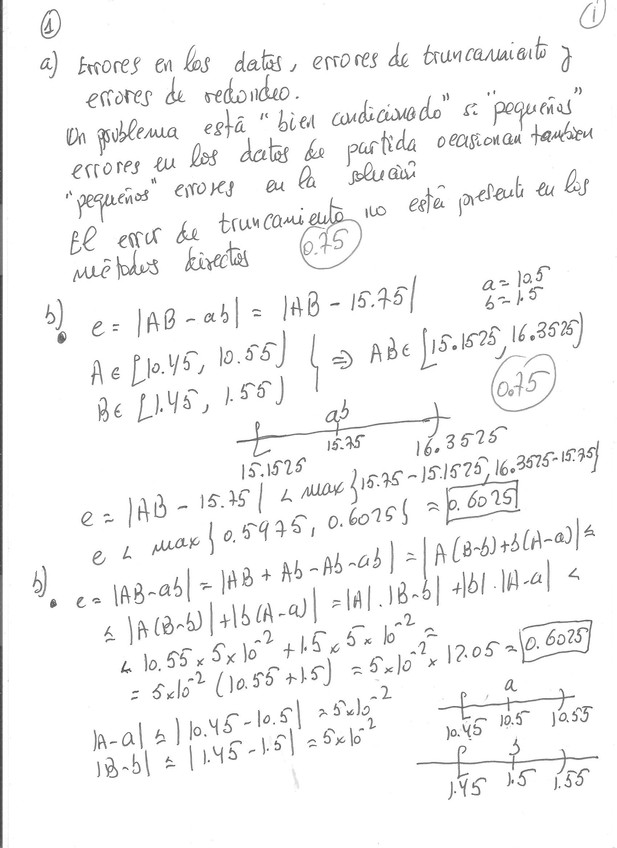 ① i
a) Errores en los datos, errores de truncamiento y
errores de redondeo.
Un problema está "bien condicionado" si "pequeños"
errores en los datos de partida ocasionan tambien
"pequeños" errores en la solución
El error de truncamiento no está presente en los
métodos directos 0.75
b). e = |AB - ab| = |AB - 15.75| a = 10.5
b = 1.5
A ∈ [10.45, 10.55)
B ∈ [1.45, 1.55) } ⇒ AB ∈ [15.1525, 16.3525)
0.75
ab
15.1525 15.75 16.3525
e = |AB - 15.75| < max{15.75 - 15.1525, 16.3525 - 15.75}
e < max{0.5975, 0.6025} = 0.6025
b). e = |AB - ab| = |AB + Ab - Ab - ab| = |A(B-b) + b(A-a)| ≤
≤ |A(B-b)| + |b(A-a)| = |A|·|B-b| + |b|·|A-a| <
< 10.55 × 5×10⁻² + 1.5 × 5×10⁻² =
= 5×10⁻² (10.55 + 1.5) = 5×10⁻² × 12.05 = 0.6025
|A-a| ≤ |10.45 - 10.5| = 5×10⁻²
|B-b| ≤ |1.45 - 1.5| = 5×10⁻²
a
10.45 10.5 10.55
b
1.45 1.5 1.55